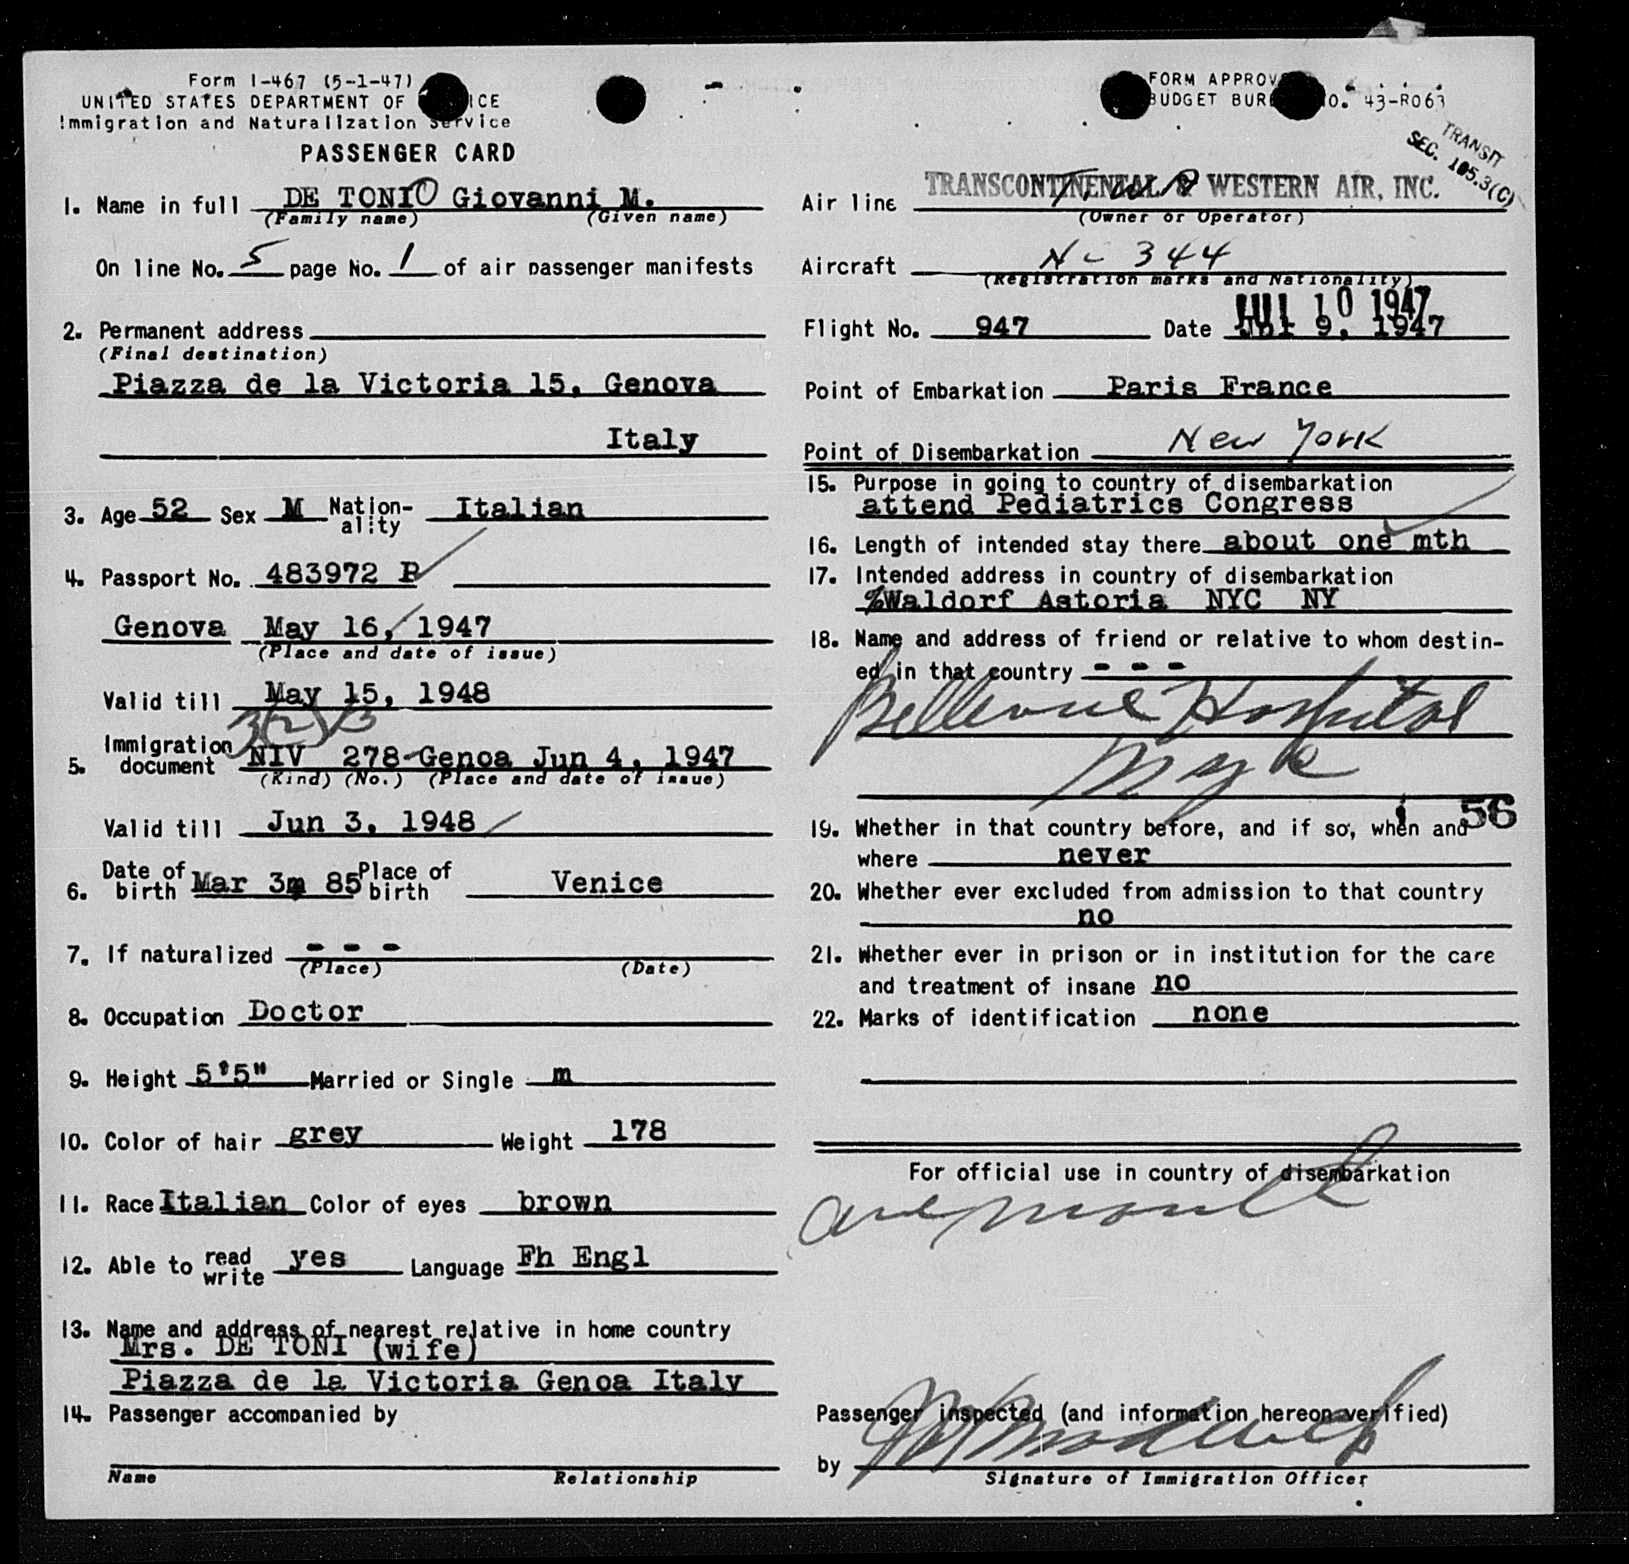 Form I-467 (5-1-47)
UNITED STATES DEPARTMENT OF ICE
Immigration and Naturalization Service
PASSENGER CARD
FORM APPROV
BUDGET BUR NO. 43-R063
TRANSIT
SEC. 105.3(C)
1. Name in full DE TONI Giovanni M.
(Family name) (Given name)
On line No. 5 page No. 1 of air passenger manifests
2. Permanent address
(Final destination)
Piazza de la Victoria 15, Genova
Italy
3. Age 52 Sex M Nation-ality Italian
4. Passport No. 483972 P
Genova May 16, 1947
(Place and date of issue)
Valid till May 15, 1948
3(2)B
5. Immigration document NIV 278-Genoa Jun 4, 1947
(Kind) (No.) (Place and date of issue)
Valid till Jun 3, 1948
6. Date of birth Mar 3m 85 Place of birth Venice
7. If naturalized - - -
(Place) (Date)
8. Occupation Doctor
9. Height 5'5" Married or Single m
10. Color of hair grey Weight 178
11. Race Italian Color of eyes brown
12. Able to read write yes Language Fh Engl
13. Name and address of nearest relative in home country
Mrs. DE TONI (wife)
Piazza de la Victoria Genoa Italy
14. Passenger accompanied by
Name Relationship
Air line TRANSCONTINENTAL & WESTERN AIR, INC. T.W.A
(Owner or Operator)
Aircraft Nc 344
(Registration marks and Nationality)
JUL 10 1947
Flight No. 947 Date 9, 1947
Point of Embarkation Paris France
Point of Disembarkation New York
15. Purpose in going to country of disembarkation
attend Pediatrics Congress
16. Length of intended stay there about one mth
17. Intended address in country of disembarkation
%Waldorf Astoria NYC NY
18. Name and address of friend or relative to whom destin-
ed in that country - - -
Bellevue Hospital
19. Whether in that country before, and if so, when and 56
where never
20. Whether ever excluded from admission to that country
no
21. Whether ever in prison or in institution for the care
and treatment of insane no
22. Marks of identification none
For official use in country of disembarkation
one month
Passenger inspected (and information hereon verified)
by
Signature of Immigration Officer